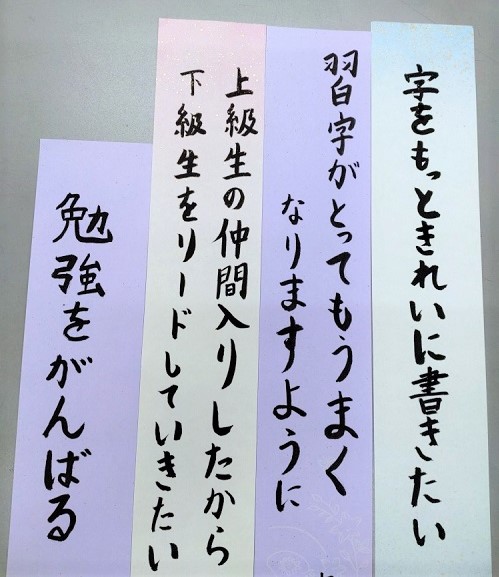 字をもっときれいに書きたい
習字がとってもうまく
なりますように
上級生の仲間入りしたから
下級生をリードしていきたい
勉強をがんばる